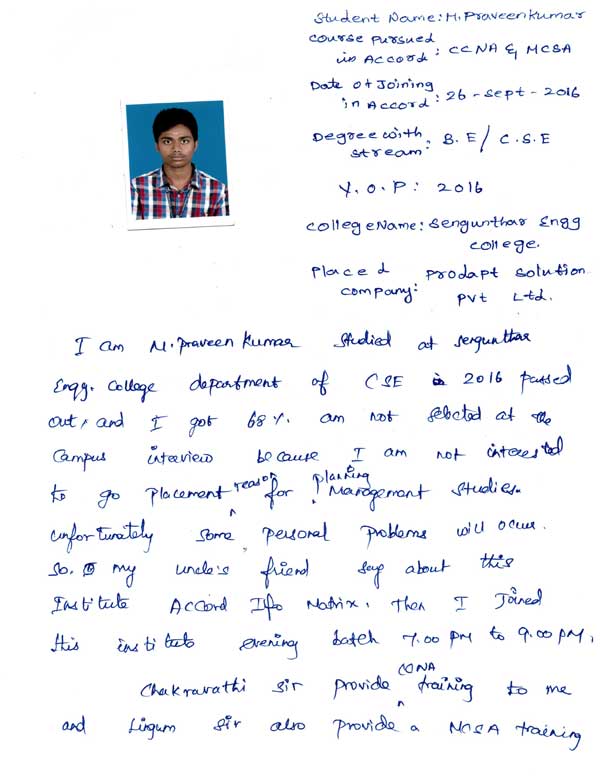 Student Name: M. Praveenkumar
Course Pursued
in Accord: CCNA & MCSA
Date of Joining
in Accord: 26-Sept-2016
Degree with
stream: B.E / C.S.E
Y.O.P: 2016
College Name: Sengunthar Engg
College.
Placed
company: Prodapt Solution
Pvt Ltd.
I am M. Praveen Kumar studied at Sengunthar
Engg. College department of CSE in 2016 passed
out, and I got 68%. am not selected at the
Campus interview because I am not interested
to go placement reason for planning Management studies.
unfortunately some personal problems will occur.
So. my uncle's friend say about this
Institute Accord Ifo Matrix. Then I Joined
this institute evening batch 7.00 PM to 9.00 PM,
Chakravathi sir provide CCNA training to me
and Lingum sir also provide a MCSA training